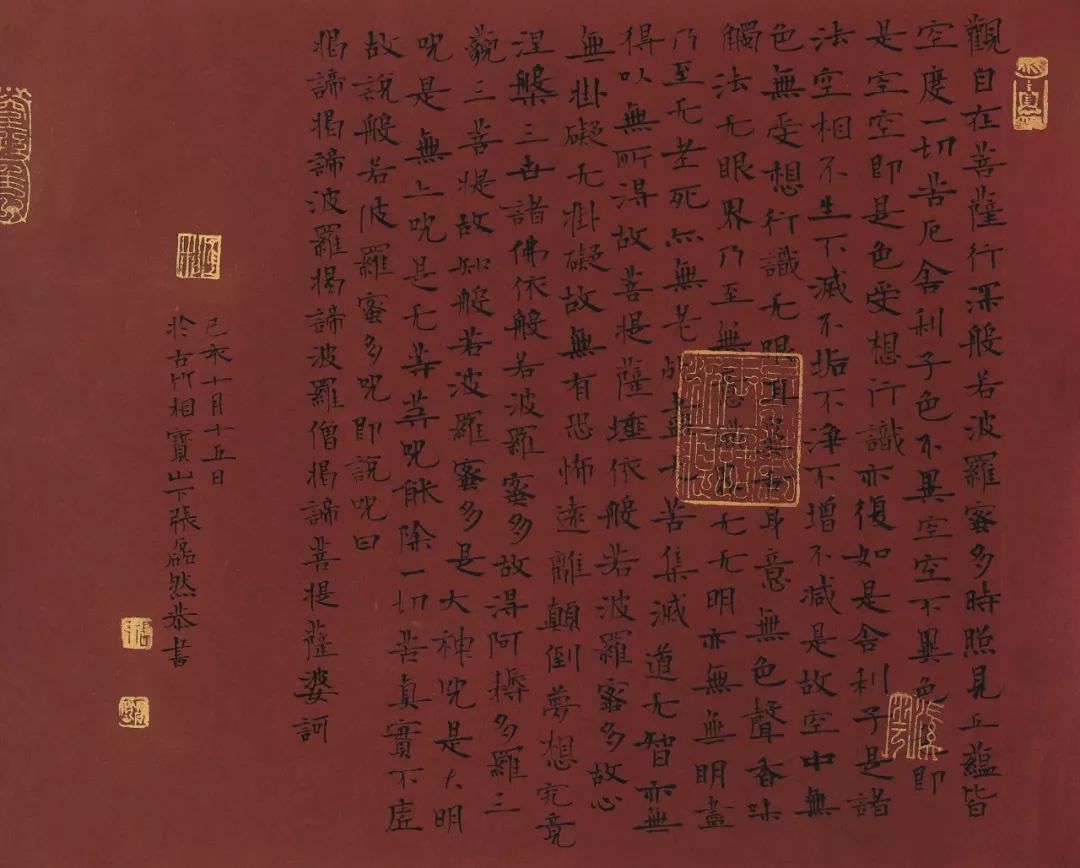 觀自在菩薩行深般若波羅蜜多時照見五蘊皆
空度一切苦厄舍利子色不異空空不異色即
是空空即是色受想行識亦復如是舍利子是諸
法空相不生不滅不垢不淨不增不減是故空中無
色無受想行識无眼耳鼻舌身意無色聲香味
觸法无眼界乃至無意識界无无明亦無無明盡
乃至无老死亦無老死盡无苦集滅道无智亦無
得以無所得故菩提薩埵依般若波羅蜜多故心
無掛礙无掛礙故無有恐怖遠離顛倒夢想究竟
涅槃三世諸佛依般若波羅蜜多故得阿耨多羅三
藐三菩提故知般若波羅蜜多是大神呪是大明
呪是無上呪是无等等呪能除一切苦真實不虛
故說般若波羅蜜多呪即說呪曰
揭諦揭諦波羅揭諦波羅僧揭諦菩提薩婆訶
己亥十月十五日
於古竹相寶山下張磊然恭書